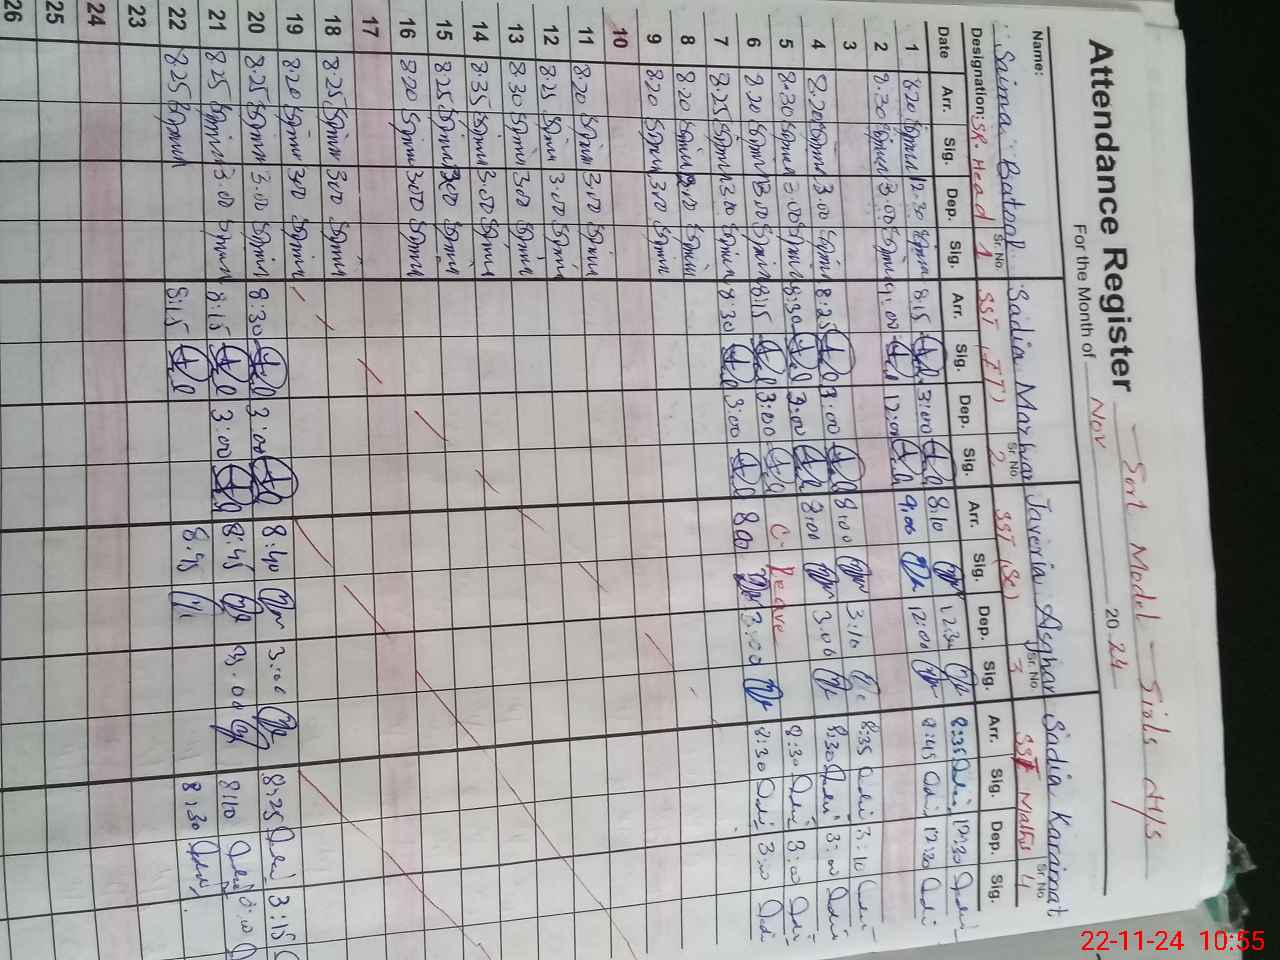 Attendance Register Govt Model Girls H/S
For the Month of Nov 2024
Name: Saima Batool Sadia Mazhar Javeria Asghar Sadia Karamat
Designation: SR. Head Sr. No. 1 SST (IT) Sr. No. 2 SST (Sc) Sr. No. 3 SST Maths Sr. No. 4
Date Arr. Sig. Dep. Sig. Arr. Sig. Dep. Sig. Arr. Sig. Dep. Sig. Arr. Sig. Dep. Sig.
1 8.20 12.30 8:15 3:00 8:10 12:30 8:35 12:30
2 8.30 3.00 9:00 12:00 9:00 12:00 8:45 12:20
3
4 8.20 3.00 8:25 3:00 8:00 3:10 8:35 3:10
5 8.30 3.00 8:30 3:00 8:00 3.00 8:30 3:00
6 8.20 3.00 8:15 3:00 C-Leave 8:30 3:00
7 8.25 3.00 8:30 3:00 8:00 3:00 8:30 3:00
8 8.20 3.00
9 8.20 3.00
10
11 8.20 3.00
12 8.25 3.00
13 8.30 3.00
14 8.35 3.00
15 8.25 3.00
16 8.20 3.00
17
18 8.25 3.00
19 8.20 3.00
20 8.25 3.00 8:30 3:00 8:40 3:00 8:25 3:15
21 8.25 3.00 8:15 3:00 8:45 3:00 8:10
22 8.25 8:15 8:45 8:30
23
24
25
26
22-11-24 10:55